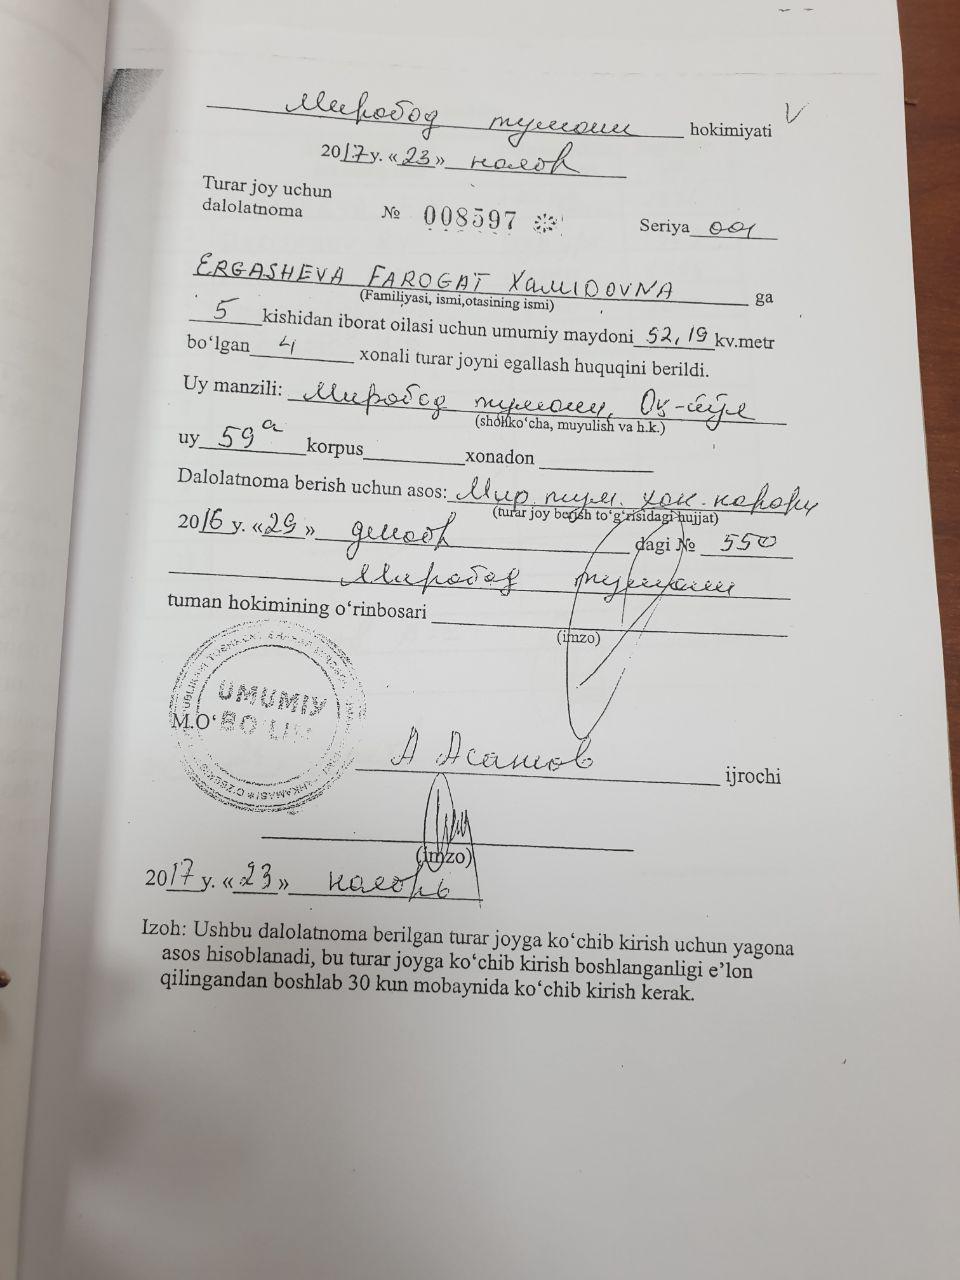 Миробод тумани hokimiyati
2017y. «23»
Turar joy uchun
dalolatnoma № 008597 Seriya 001
ERGASHEVA FAROGAT XAMIDOVNA ga
(Familiyasi, ismi,otasining ismi)
5 kishidan iborat oilasi uchun umumiy maydoni 52,19 kv.metr
bo‘lgan 4 xonali turar joyni egallash huquqini berildi.
Uy manzili: Миробод тумани, Оқ-йўл
(shohko‘cha, muyulish va h.k.)
uy 59а korpus xonadon
Dalolatnoma berish uchun asos: Мир. тум. хок. карори
(turar joy berish to‘g‘risidagi hujjat)
2016 y. «29» dagi № 550
Миробод тумани
tuman hokimining o‘rinbosari
(imzo)
UMUMIY
M.O‘ BO‘LIM
А Асанов ijrochi
(imzo)
2017y. «23»
Izoh: Ushbu dalolatnoma berilgan turar joyga ko‘chib kirish uchun yagona
asos hisoblanadi, bu turar joyga ko‘chib kirish boshlanganligi e’lon
qilingandan boshlab 30 kun mobaynida ko‘chib kirish kerak.